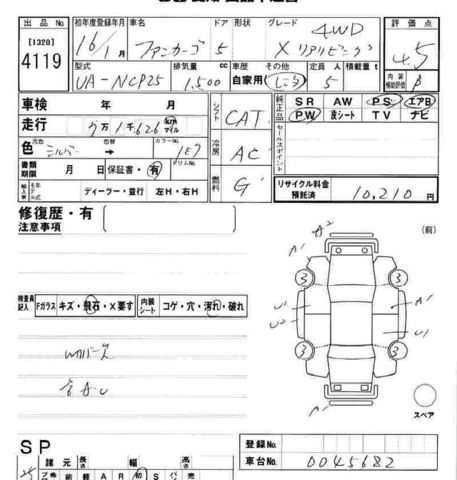 出品No. 初年度登録年月 車名 ドア 形状 グレード 評価点
[1320] 16/1月 ファンカーゴ 5 X リアリビング 4WD 4.5
4119 型式 排気量 cc 車歴 その他 定員 人 積載量 t 内装補助評価 B
UA-NCP25 1,500 自家用 5
車検 年 月 シフト CAT 純正品 SR AW PS エアB
走行 7万1千626 km マイル PW 皮シート TV ナビ
色 元色 シルバー 色替 → カラーNo. 1E7 冷房 AC セールスポイント
書類期限 月 日 保証書・有 リサイクル料金預託済 10,210 円
輸入車 モデル 年式 ディーラー・並行 左H・右H 燃料 G
修復歴・有
注意事項
(前)
A1 A2
3 3
U1 A1
U2 U1
3 3
A1
スペア
検査員記入 Fガラス キズ・飛石・X要す 内装シート コゲ・穴・汚れ・破れ
SP
登録No.
諸元 長さ 幅 高さ 車台No. 0045682